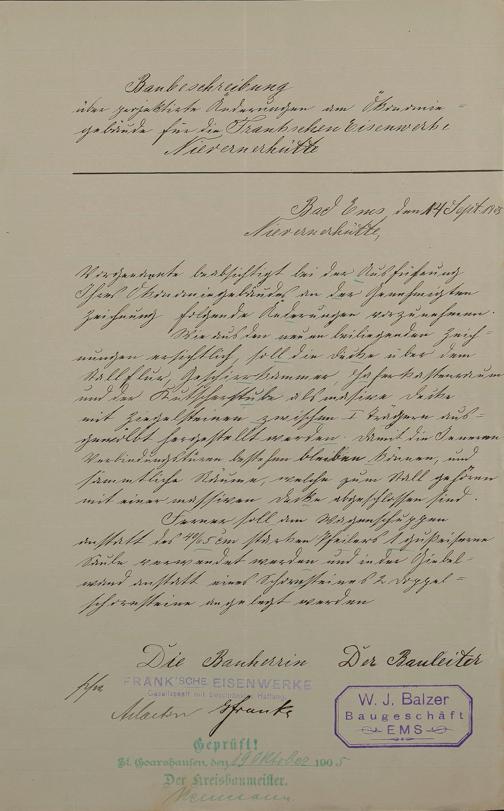 Baubeschreibung
über projektirte Änderungen am Ökonomie-
gebäude für die Frankschen Eisenwerke
Nievernerhütte
Bad Ems, den 14 Sept. 1905
Nievernerhütte,
Vorgenannte beabsichtigt bei der Ausführung
Ihres Ökonomiegebäudes an der Genehmigten
Zeichnung folgende Änderungen vorzunehmen.
Wie aus den neuen beiliegenden Zeich-
nungen ersichtlich, soll die Decke über dem
Stallflur, Geschirrkammer Haferkastenraum
und der Kutscherstube als massive Decke
mit Ziegelsteinen zwischen I Trägern aus-
gewölbt hergestellt werden. Damit die Inneren
Verbindungstüren bestehen bleiben können, und
sämmtliche Räume, welche zum Stall gehören
mit einer massiven Decke abgeschlossen sind.
Ferner soll am Wagenschuppen
anstatt des cm starken Pfeilers 1 gußeiserne
Säule verwendet werden und in der Giebel-
wand anstatt eines Schornsteines 2 Doppel=
schornsteine angelegt werden
Die Bauherrin Der Bauleiter
FRANK'SCHE EISENWERKE
Gesellschaft mit beschränkter Haftung.
W. J. Balzer
Baugeschäft
EMS
Geprüft!
St. Goarshausen, den 19 Oktober 1905
Der Kreisbaumeister.